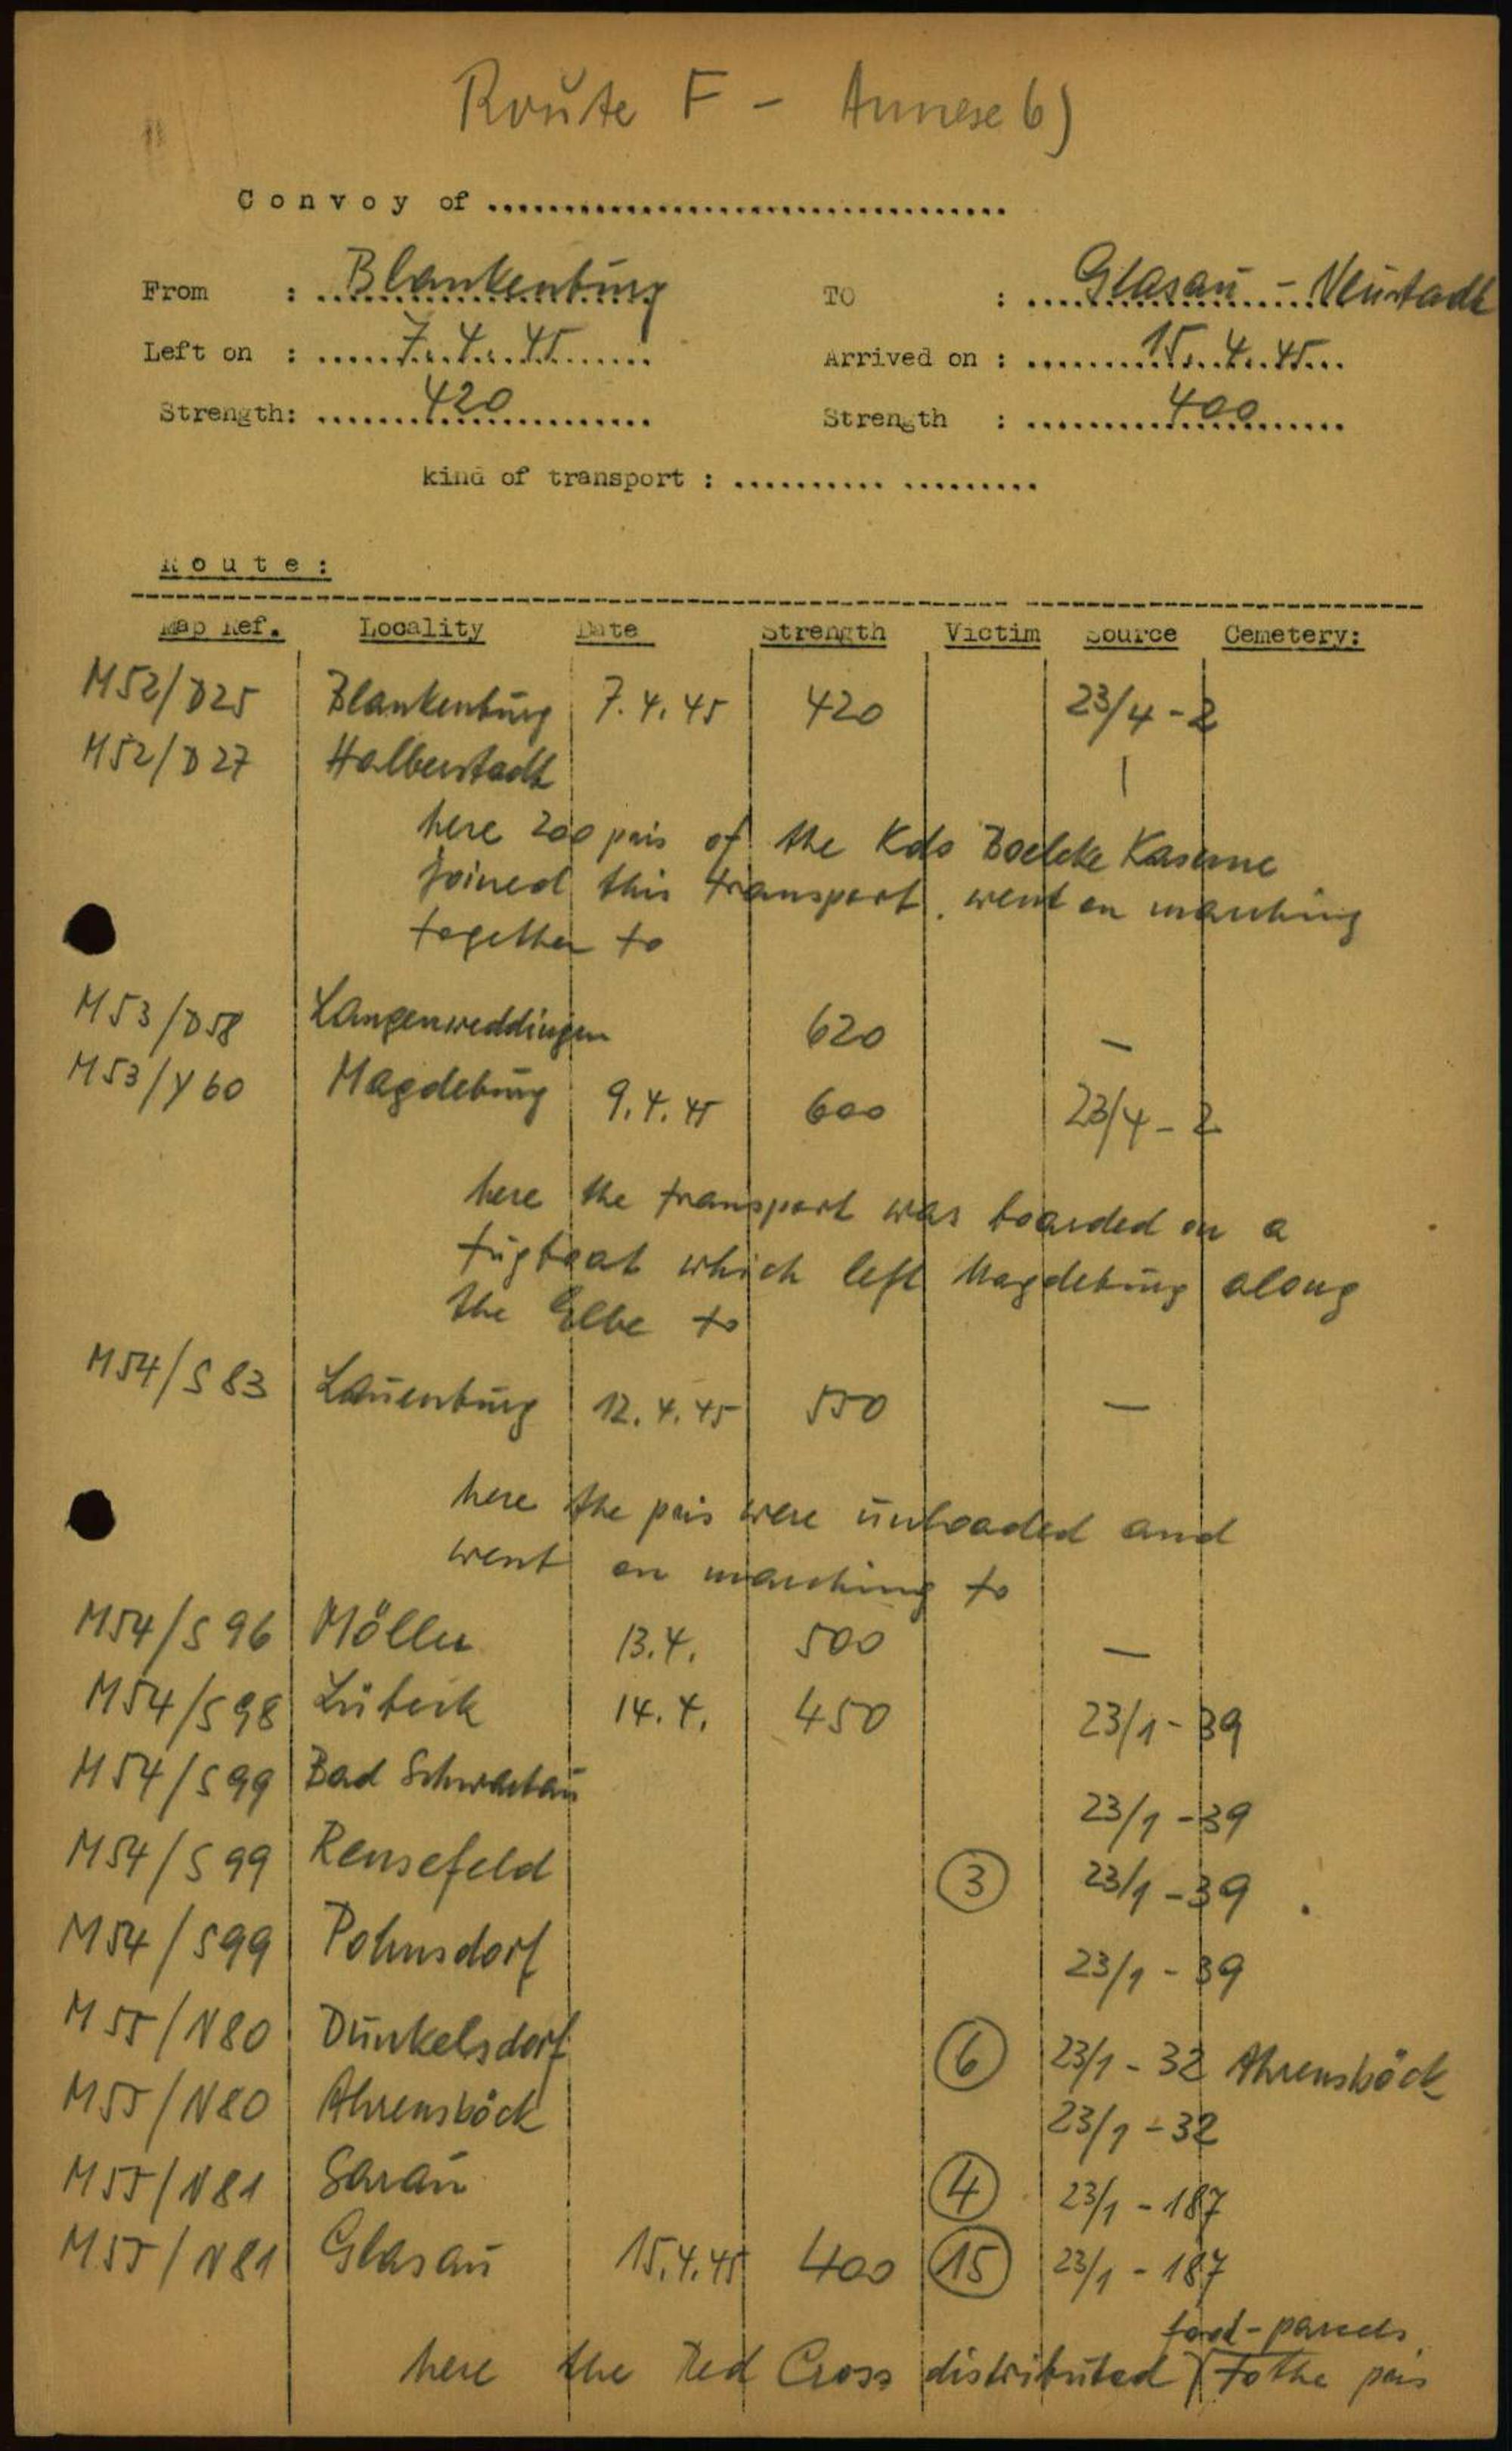 Route F - Annexe 6)
Convoy of ..................................
From : Blankenburg TO : Glasau - Neustadt
Left on : 7.4.45 Arrived on : 15.4.45
Strength: 420 Strength : 400
kind of transport : .......... .........
Route:
Map Ref. Locality Date Strength Victim Source Cemetery:
M52/D25 Blankenburg 7.4.45 420 23/4-2
M52/D27 Halberstadt |
here 200 pris of the Kdo Boelcke Kaserne
joined this transport, went on marching
together to
M53/D58 Langenweddingen 620 —
M53/Y60 Magdeburg 9.4.45 600 23/4-2
here the transport was boarded on a
tugboat which left Magdeburg along
the Elbe to
M54/S83 Lauenburg 12.4.45 550 —
here the pris were unloaded and
went on marching to
M54/S96 Mölln 13.4. 500 —
M54/S98 Lübeck 14.4. 450 23/1-39
M54/S99 Bad Schwartau 23/1-39
M54/S99 Rensefeld 3 23/1-39
M54/S99 Pohnsdorf 23/1-39
M55/N80 Dunkelsdorf 6 23/1-32 Ahrensböck
M55/N80 Ahrensböck 23/1-32
M55/N81 Sarau 4 23/1-187
M55/N81 Glasau 15.4.45 400 15 23/1-187
food-parcels
here the Red Cross distributed to the pris